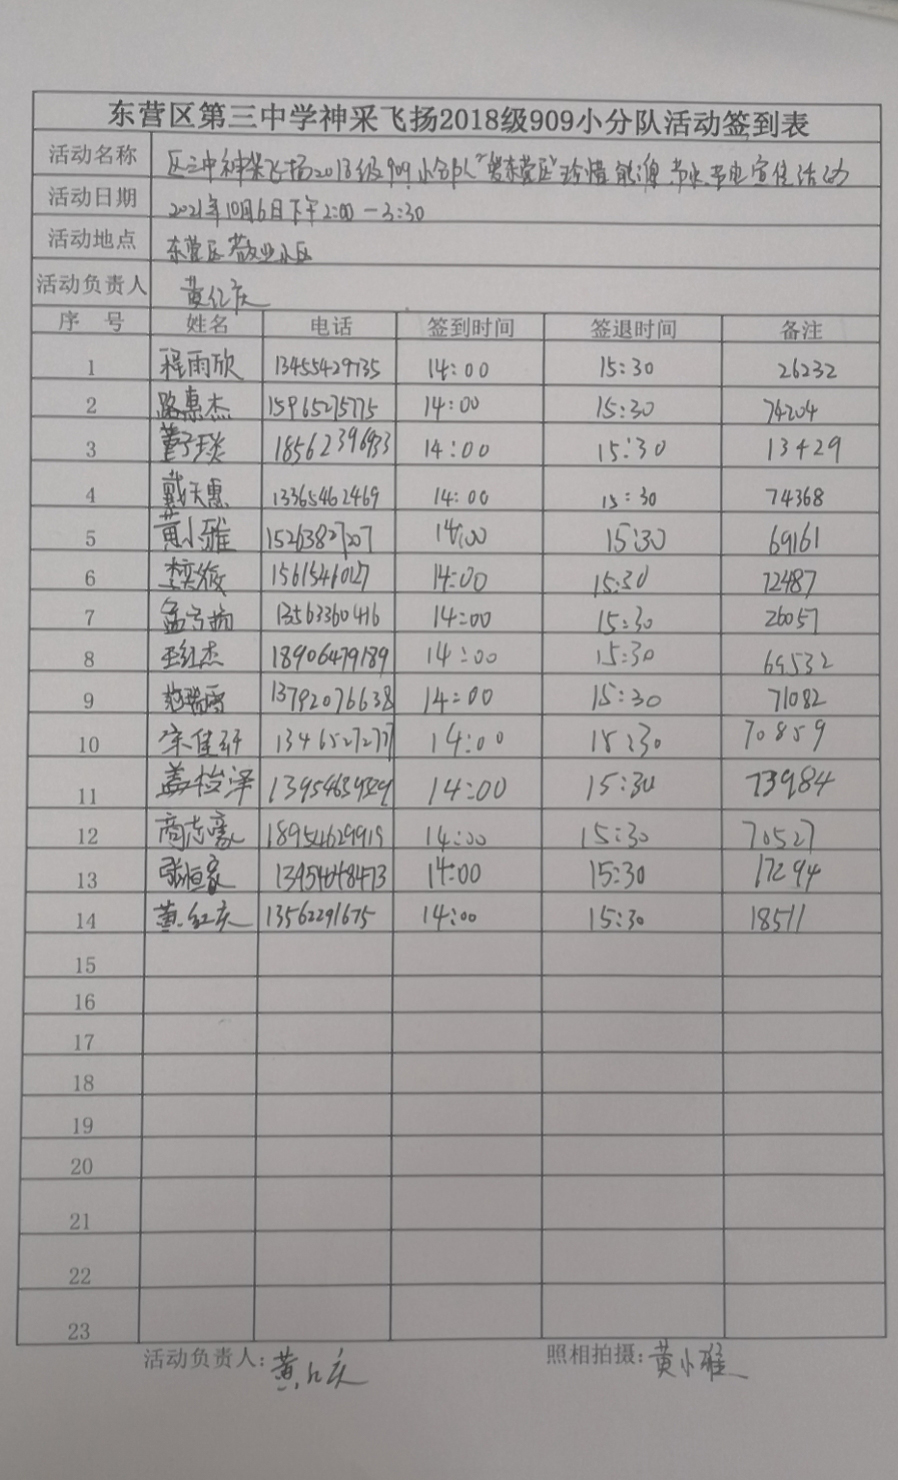 东营区第三中学神采飞扬2018级909小分队活动签到表
活动名称 区三中神采飞扬2018级909小分队"爱东营区"珍惜能源 节水节电宣传活动
活动日期 2021年10月6日下午2:00-3:30
活动地点 东营区敬业小区
活动负责人 黄红庆
序号 姓名 电话 签到时间 签退时间 备注
1 程雨欣 13455429735 14:00 15:30 26232
2 路惠杰 15965275775 14:00 15:30 74204
3 董子琰 18562396933 14:00 15:30 13429
4 戴天惠 13365462469 14:00 15:30 74368
5 黄小雅 15263827207 14:00 15:30 69161
6 14:00 15:30 72487
7 孟令扬 13563360416 14:00 15:30 26057
8 王红杰 18906479189 14:00 15:30 69532
9 13792076638 14:00 15:30 71082
10 宋佳轩 13465272777 14:00 15:30 70859
11 盖俊泽 14:00 15:30 73984
12 商志豪 18954629919 14:00 15:30 70527
13 张恒家 14:00 15:30 17294
14 黄红庆 13562291675 14:00 15:30 18511
15
16
17
18
19
20
21
22
23
活动负责人:黄红庆 照相拍摄:黄小雅